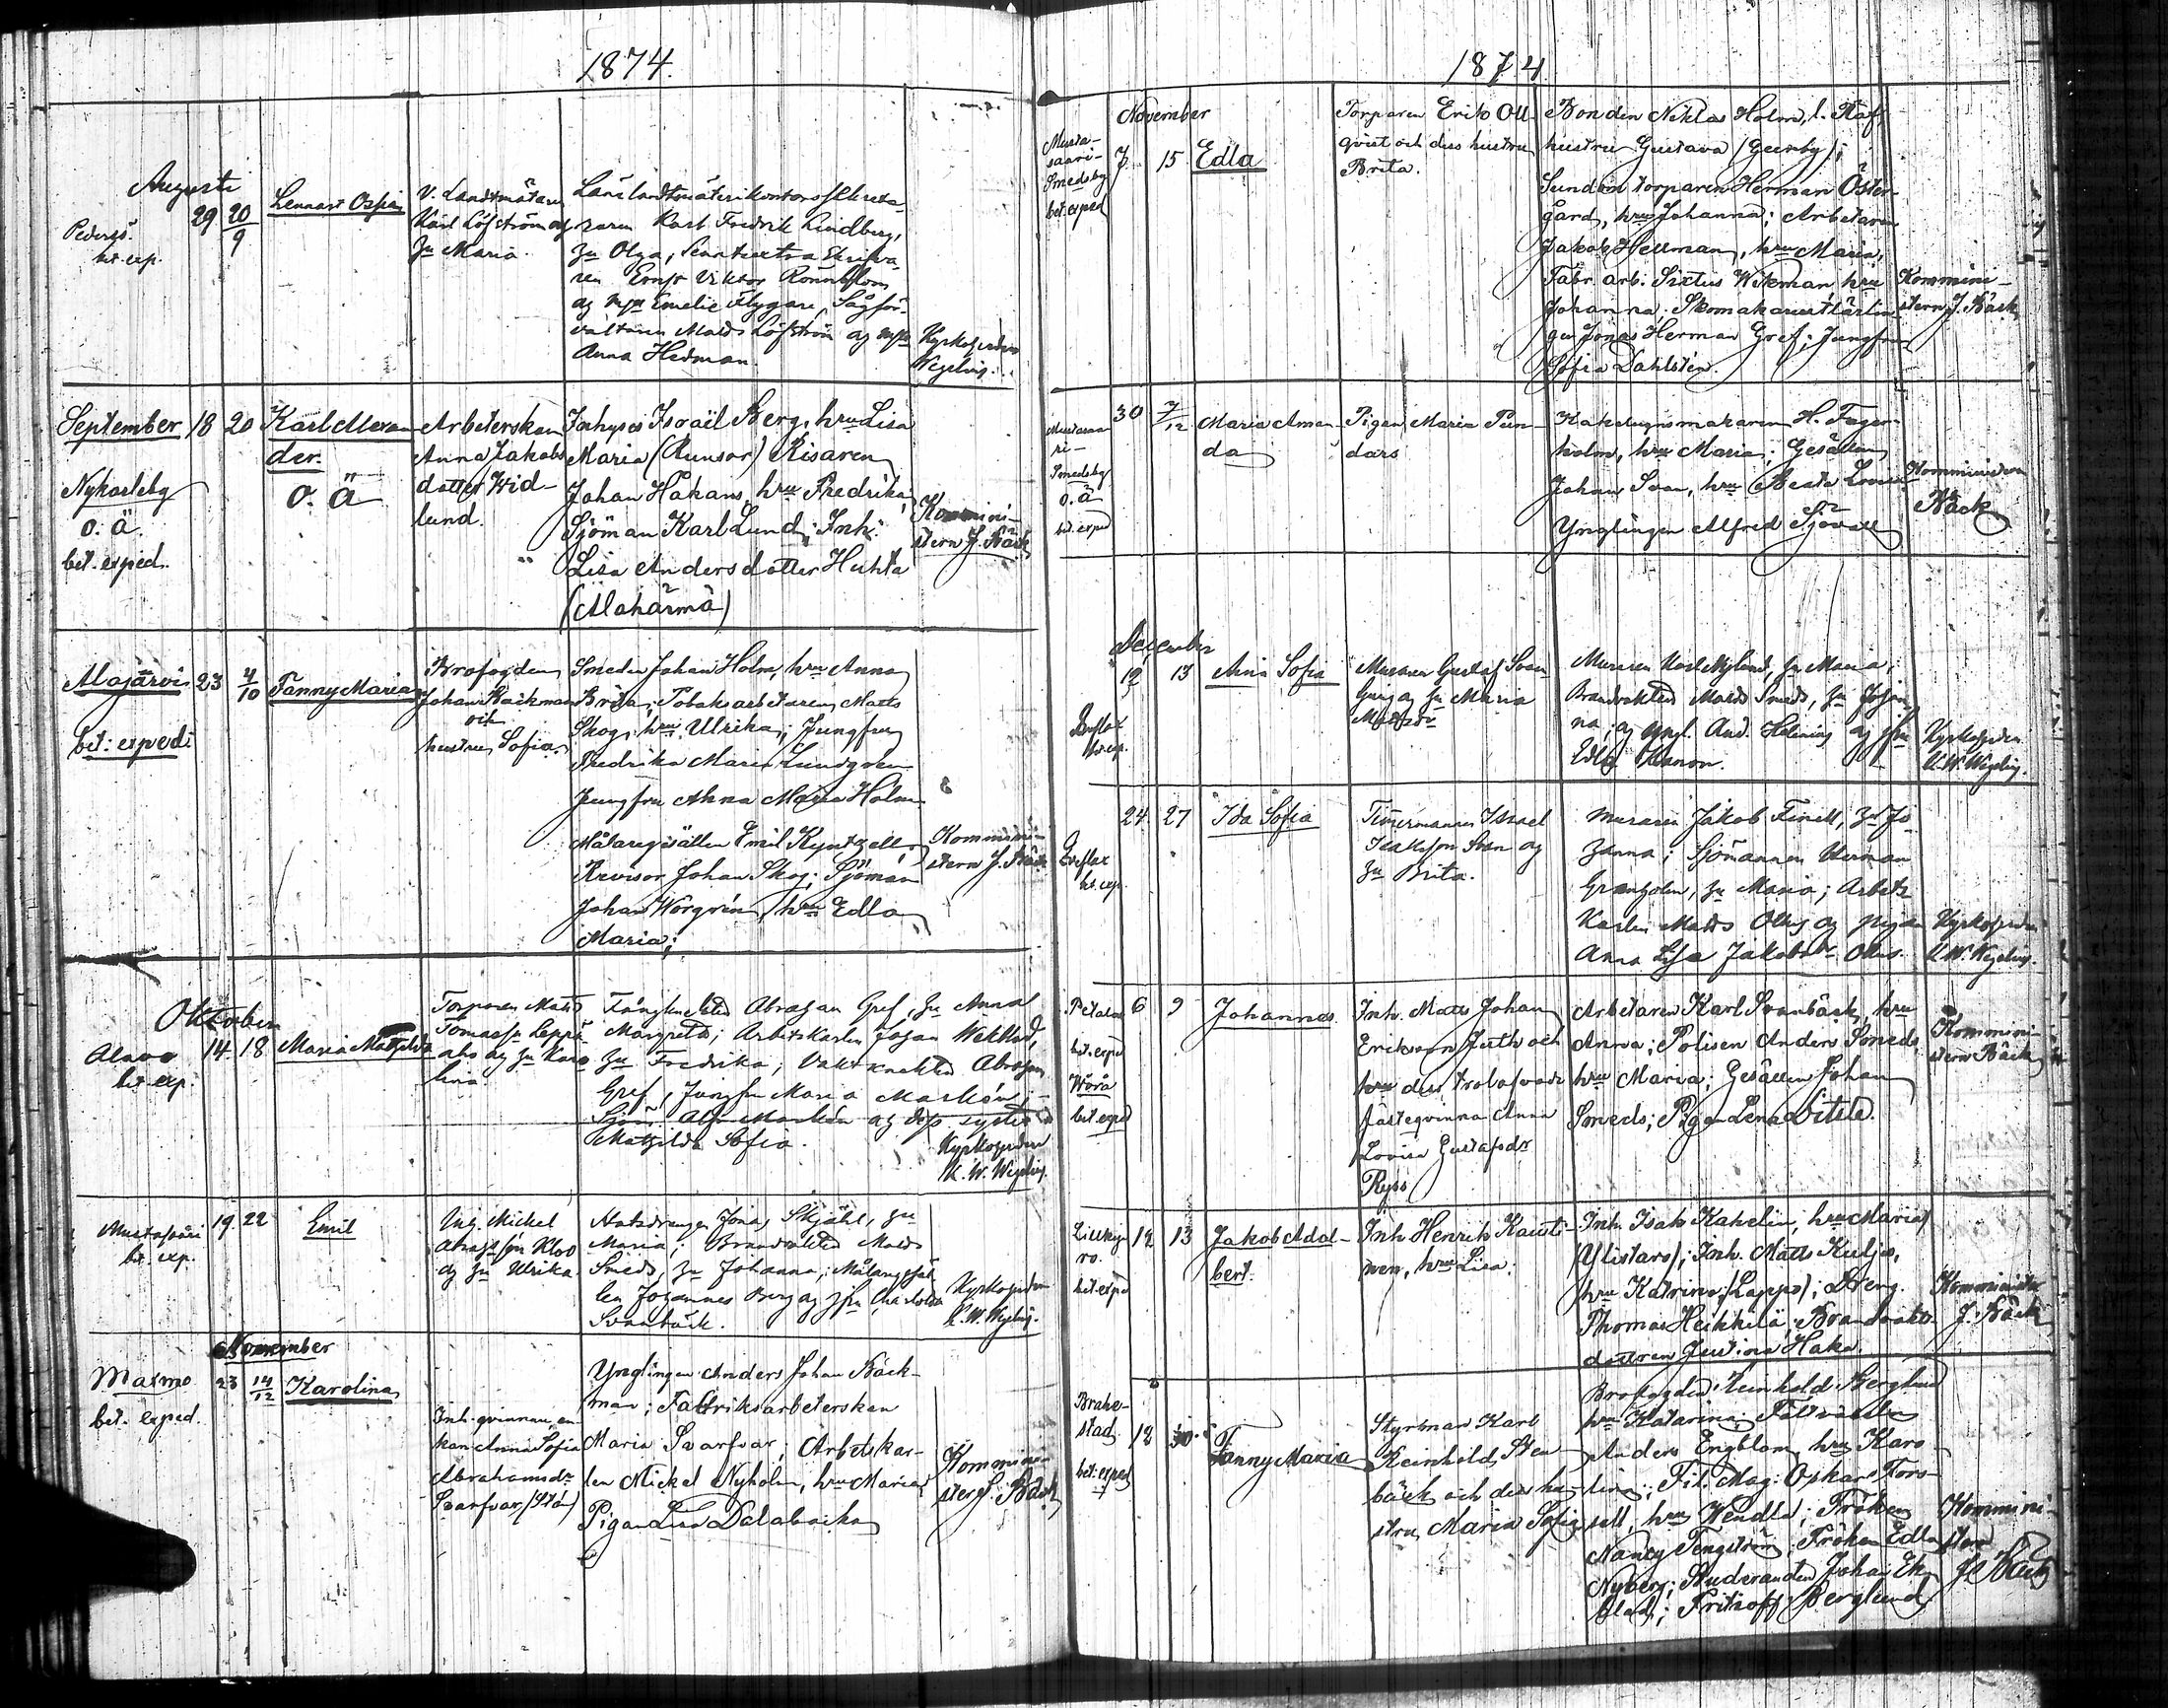 1874.
Augusti
Pedersö.
bet. exp.
29 20/9
Lennart
V. Landtmätaren
Karl Löfström og
hu Maria
Länslandtmäterikontors
Karl Fredrik Lindberg,
hu Olga,
ren Ernst Viktor Rönnblom
og Emelie Flygare,
Matts Löfström og
Anna Hedman.
Kyrkoherden
Wegelius.
September 18 20
Nykarleby
o. ä.
bet. exped.
Karl Alexan
der.
o. ä
Arbeterskan
Anna Jakobs
dotter Wid-
lund.
Inhyses Israël Berg, hru Lisa
Maria (Runsor) Risaren
Johan Håkans, hru Fredrika;
Sjöman Karl Lund; Inh:
Lisa Andersdotter Huhta
(Alahärmä)
Kommini-
stern J. Bäck
Alajärvi 23 4/10
bet: exped:
Fanny Maria
Brofogden
Johan Backman
och
hustru Sofia
Smeden Johan Holm, hru Anna
Brita; Tobaksarbetaren Matts
Skog, hru Ulrika; Jungfru
Fredrika Maria Lundgren
Jungfru Anna Maria Holm
Målaregesällen Emil Kyntzell
Revisor Johan Skog; Sjöman
Johan Worgrén, hru Edla
Maria;
Kommini-
stern J. Bäck
Oktober
Alavo 14 18
bet. exp.
Maria Matilda
Torparen Matts
Tomass.
aho og hu Karo
lina
Abraham Gref, hu Anna
Margreta; Arbetskarlen Johan
hu Fredrika; Vaktknekten Abraham
Gref, Jungfru Maria Maskén;
Maskén og dess syster
Matilda Sofia.
Kyrkoherden
K. W. Wegelius.
Mustasaari 19. 22
bet. exp.
Emil
Inh. Mickel
Kloo
og hu Ulrika.
Jonas Skjähl, hu
Maria; Brandvakten Matts
Smeds, hu Johanna; Målaregesäl
len Johannes Berg og jfru Charlotta
Svanbäck.
Kyrkoherden
K. W. Wegelius.
November
Maxmo 23 14/12
bet. exped.
Karolina
Inh. qvinnan, en
kan Anna Sofia
Abrahamsdr
Svarfvar
Ynglingen Anders Johan Bäck-
man; Fabriksarbeterskan
Maria Svarfvar; Arbetskar-
len Mickel Nyholm, hru Maria;
Pigan Lisa Dalabacka
Kommini-
ster J. Bäck
1874
November
Musta-
saari-
Smedsby
bet. exped
7 15 Edla
Torparen Erik Oll-
qvist och dess hustru
Brita.
Bonden Niklas Holm,
hustru Gustava (Gerby);
Sundom torparen Herman Öster-
gård, hru Johanna; Arbetaren
Jakob Hellman, hru Maria,
Fabr. arb. Sixtus Wikman, hru
Johanna; Skomakarelärlin-
gen Jonas Herman Gref; Jungfrun
Sofia Dahlstén.
Kommini-
stern J. Bäck
Mustasaa
ri-
Smedsby
o. ä
bet. exped
30 7/12
Maria Aman
da
Pigan Maria Pun-
dars
Kakelugnsmakaren H. Fager-
holm, hru Maria; Gesällen
Johan Svan, hru Beata Lovisa
Ynglingen Alfred Sjövall
Kommistern
Bäck
December
12 13 Sofia
Kveflax
bet. exp.
Muraren Gustaf Svan
ljung og hu Maria
Matsdr
Muraren Karl Nylund, hu Maria
Brandvakten Matts Smeds, hu Johan
na; og yngl. And. Helenius og jfru
Edla
Kyrkoherden
K. W. Wegelius.
24. 27 Ida Sofia
Kveflax
bet. exp.
Timermannen Israel
Isaksson Sven og
hu Brita.
Muraren Jakob Finell, hu Jo
hanna; Sjömannen Herman
Granholm, hu Maria; Arbets
karlen Matts Ollus og pigan
Anna Lisa Jakobsdr Ollus.
Kyrkoherden
K. W. Wegelius.
Petalax 6 9
bet. exped
Wörå
bet. exped
Johannes.
Inh. Matts Johan
Eriksson Juth och
hru dess trolofvade
fästeqvinna Anna
Lovisa Gustafsdr
Ryss
Arbetaren Karl Svanbäck, hru
Anna; Polisen Anders Smeds,
hru Maria; Gesällen Johan
Smeds; Pigan Lena
Kommini-
stern Bäck
Lillky-
ro.
bet. exped
12 13 Jakob Adal-
bert.
Inh. Henrik Kausti-
nen, hru Lisa;
Inh. Isak Kahelin, hru Maria
(Ylistaro); Inh. Matts Kuljo,
hru Katrina (Lappo); Dreng
Thomas Heikkilä; Brandvakts-
dottren Justina Haka.
Kommistern
J. Bäck
Brahe-
stad
bet. exped
12
Fanny Maria
Styrman Karl
Reinhold Sten-
bäck och dess hu-
stru Maria Sofia
Brofogden Reinhold Berglund
hru Katarina;
Anders Engblom, hru Karo-
lina; Fil. Mag: Oskar Fors-
sell, hru Wendla; Fröken
Nancy Tengström; Fröken Edla
Nyberg; Studeranden Johan Ek-
blad; Fritioff Berglund
Kommini-
stern
J. Bäck